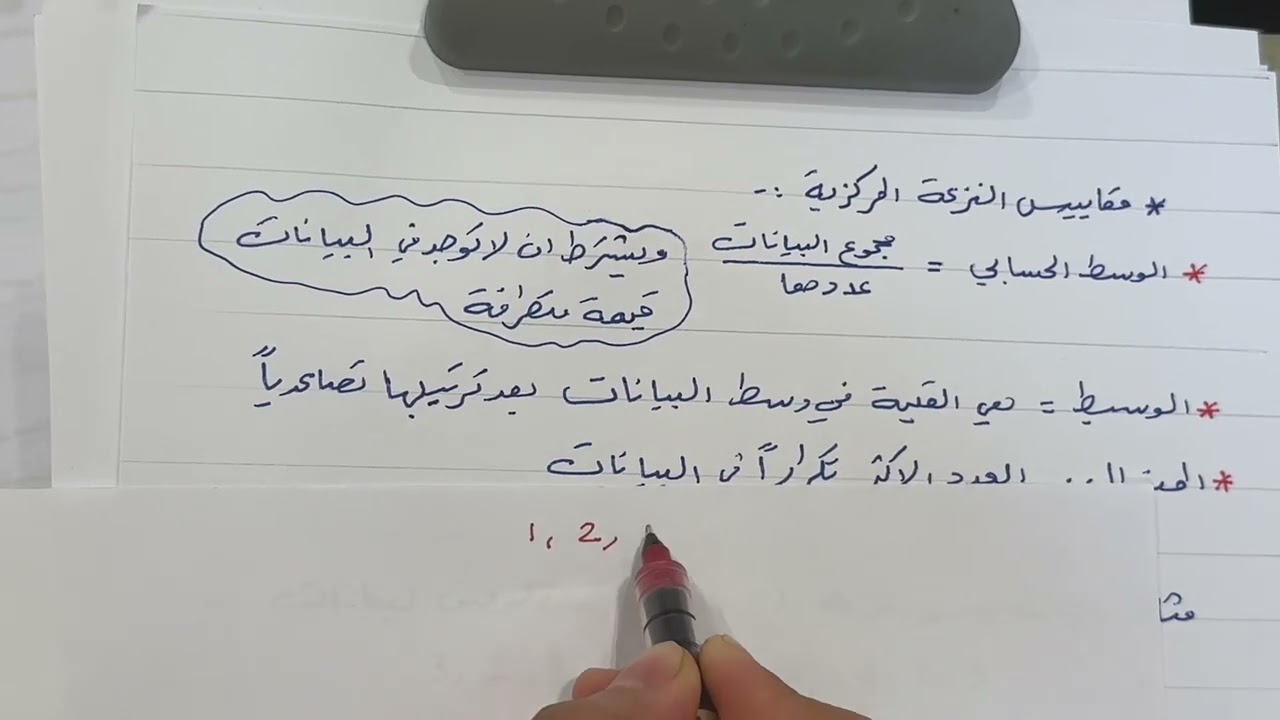 * مقاييس النزعة المركزية :-
* الوسط الحسابي = مجموع البيانات / عددها
ويشترط ان لا توجد في البيانات
قيمة متطرفة
* الوسيط = هي القيمة في وسط البيانات بعد ترتيبها تصاعدياً
* العدد الاكثر تكراراً في البيانات
1, 2,